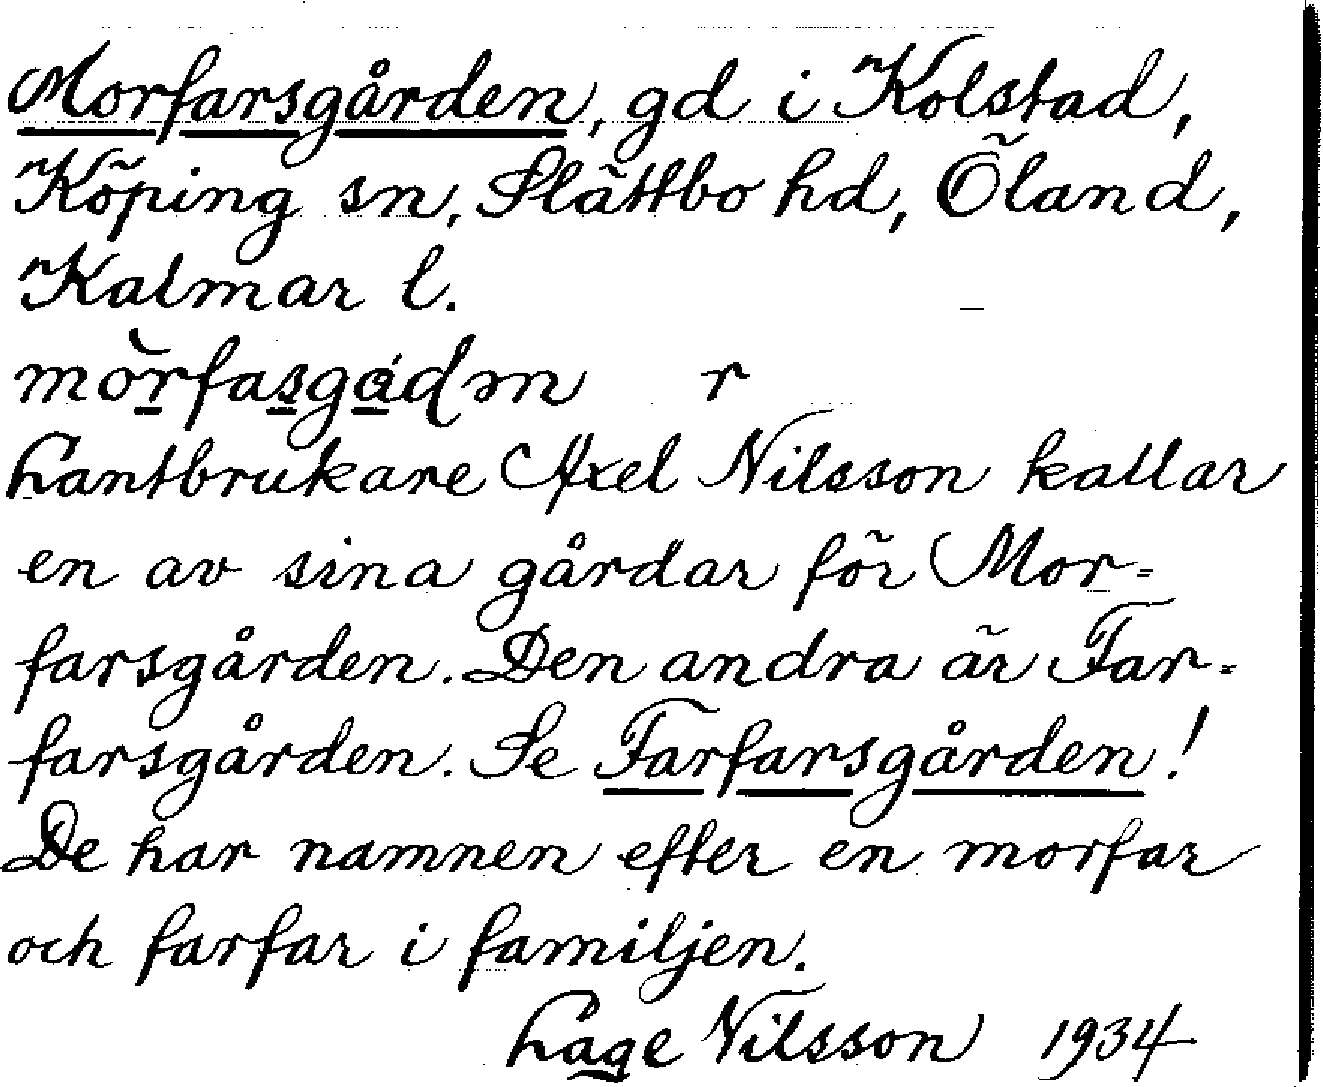 Morfarsgården, gd i Kolstad,
Köping sn, Slättbo hd, Öland,
Kalmar l.
r
Lantbrukare Axel Nilsson kallar
en av sina gårdar för Mor=
farsgården. Den andra är Far=
farsgården. Se Farfarsgården!
De har namnen efter en morfar
och farfar i familjen.
Lage Nilsson 1934